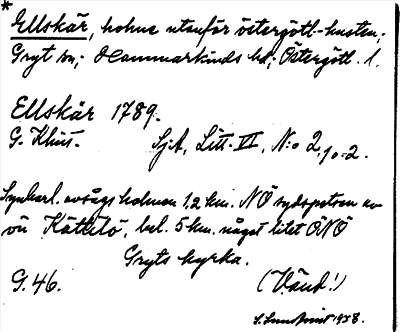 * Ellskär, holme utanför östergötl.-kusten;
Gryt sn; Hammarkinds hd; Östergötl. l.
Ellskär 1789.
G. Klint. Sjt, Litt. II, N:o 2, 10-2.
avsågs holmen 1,2 km. NÖ sydspetsen av
ön Kättilö, bel. 5 km. något litet ÖNÖ
Gryts kyrka.
G. 46. (Vänd!)
S. Sundqvist 1938.